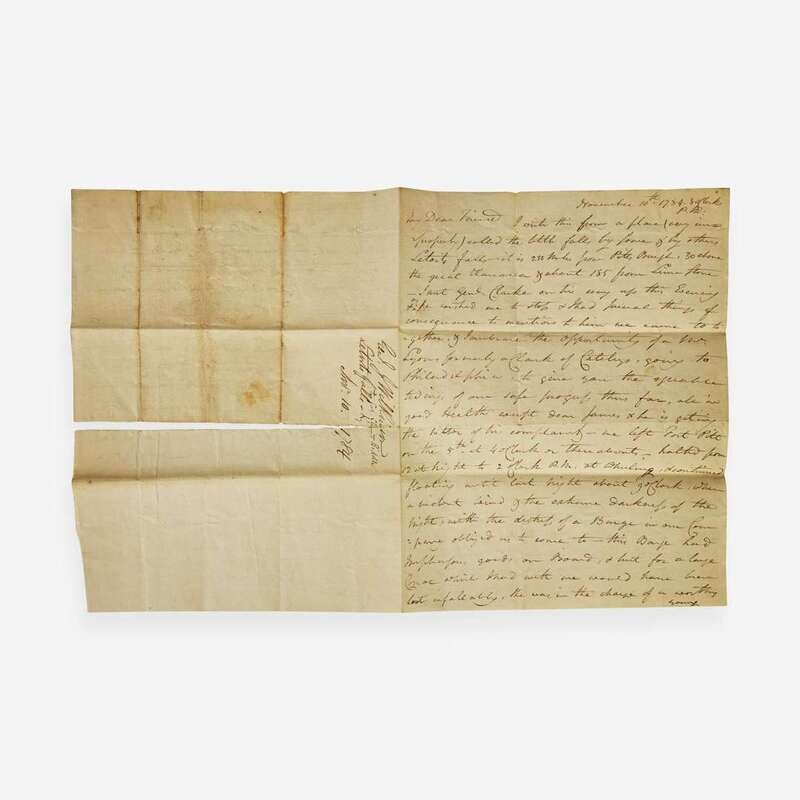 November 10th 1784 8 oClock
P.M.
My Dear Friend I write this from a place (very im=
properly) called the little falls by some & by others
Letarts falls it is 230 Miles from Pitts Burgh, 30 above
the great Kanawa & about 185 from Lime Stone
I met Genl. Clarke on his way up this Evening
wished me to stop & I had several things of
consequence to mention to him we came to to=
=gether, & I embrace the opportunity of a Mr
Lyon, formerly a Clerk of going to
Philadelphia to give you the agreeable
tiding, of our safe progress thus far, all in
good Health except dear James & he is getting
the better of his complaint — we left Fort Pitt
on the 5th at 4 oClock or thereabouts, halted from
12 at Night to 2 oClock P.M. at & continued
floating until last Night about 9 oClock, when
a violent wind & the extreme darkness of the
Night, with the distress of a Barge in our Com
=pany obliged us to come to — this Barge had
goods on Board, & but for a large
Canoe which I had with me would have been
lost infallably, she was in the charge of a worthy
young
Genl. J Wilkinson
Letarts falls
Novr. 10. 1784